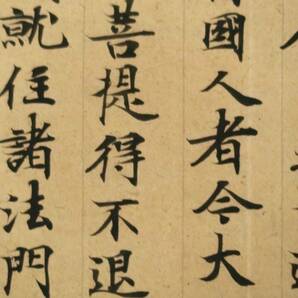 國人者令大
菩提得不退
就住諸法門